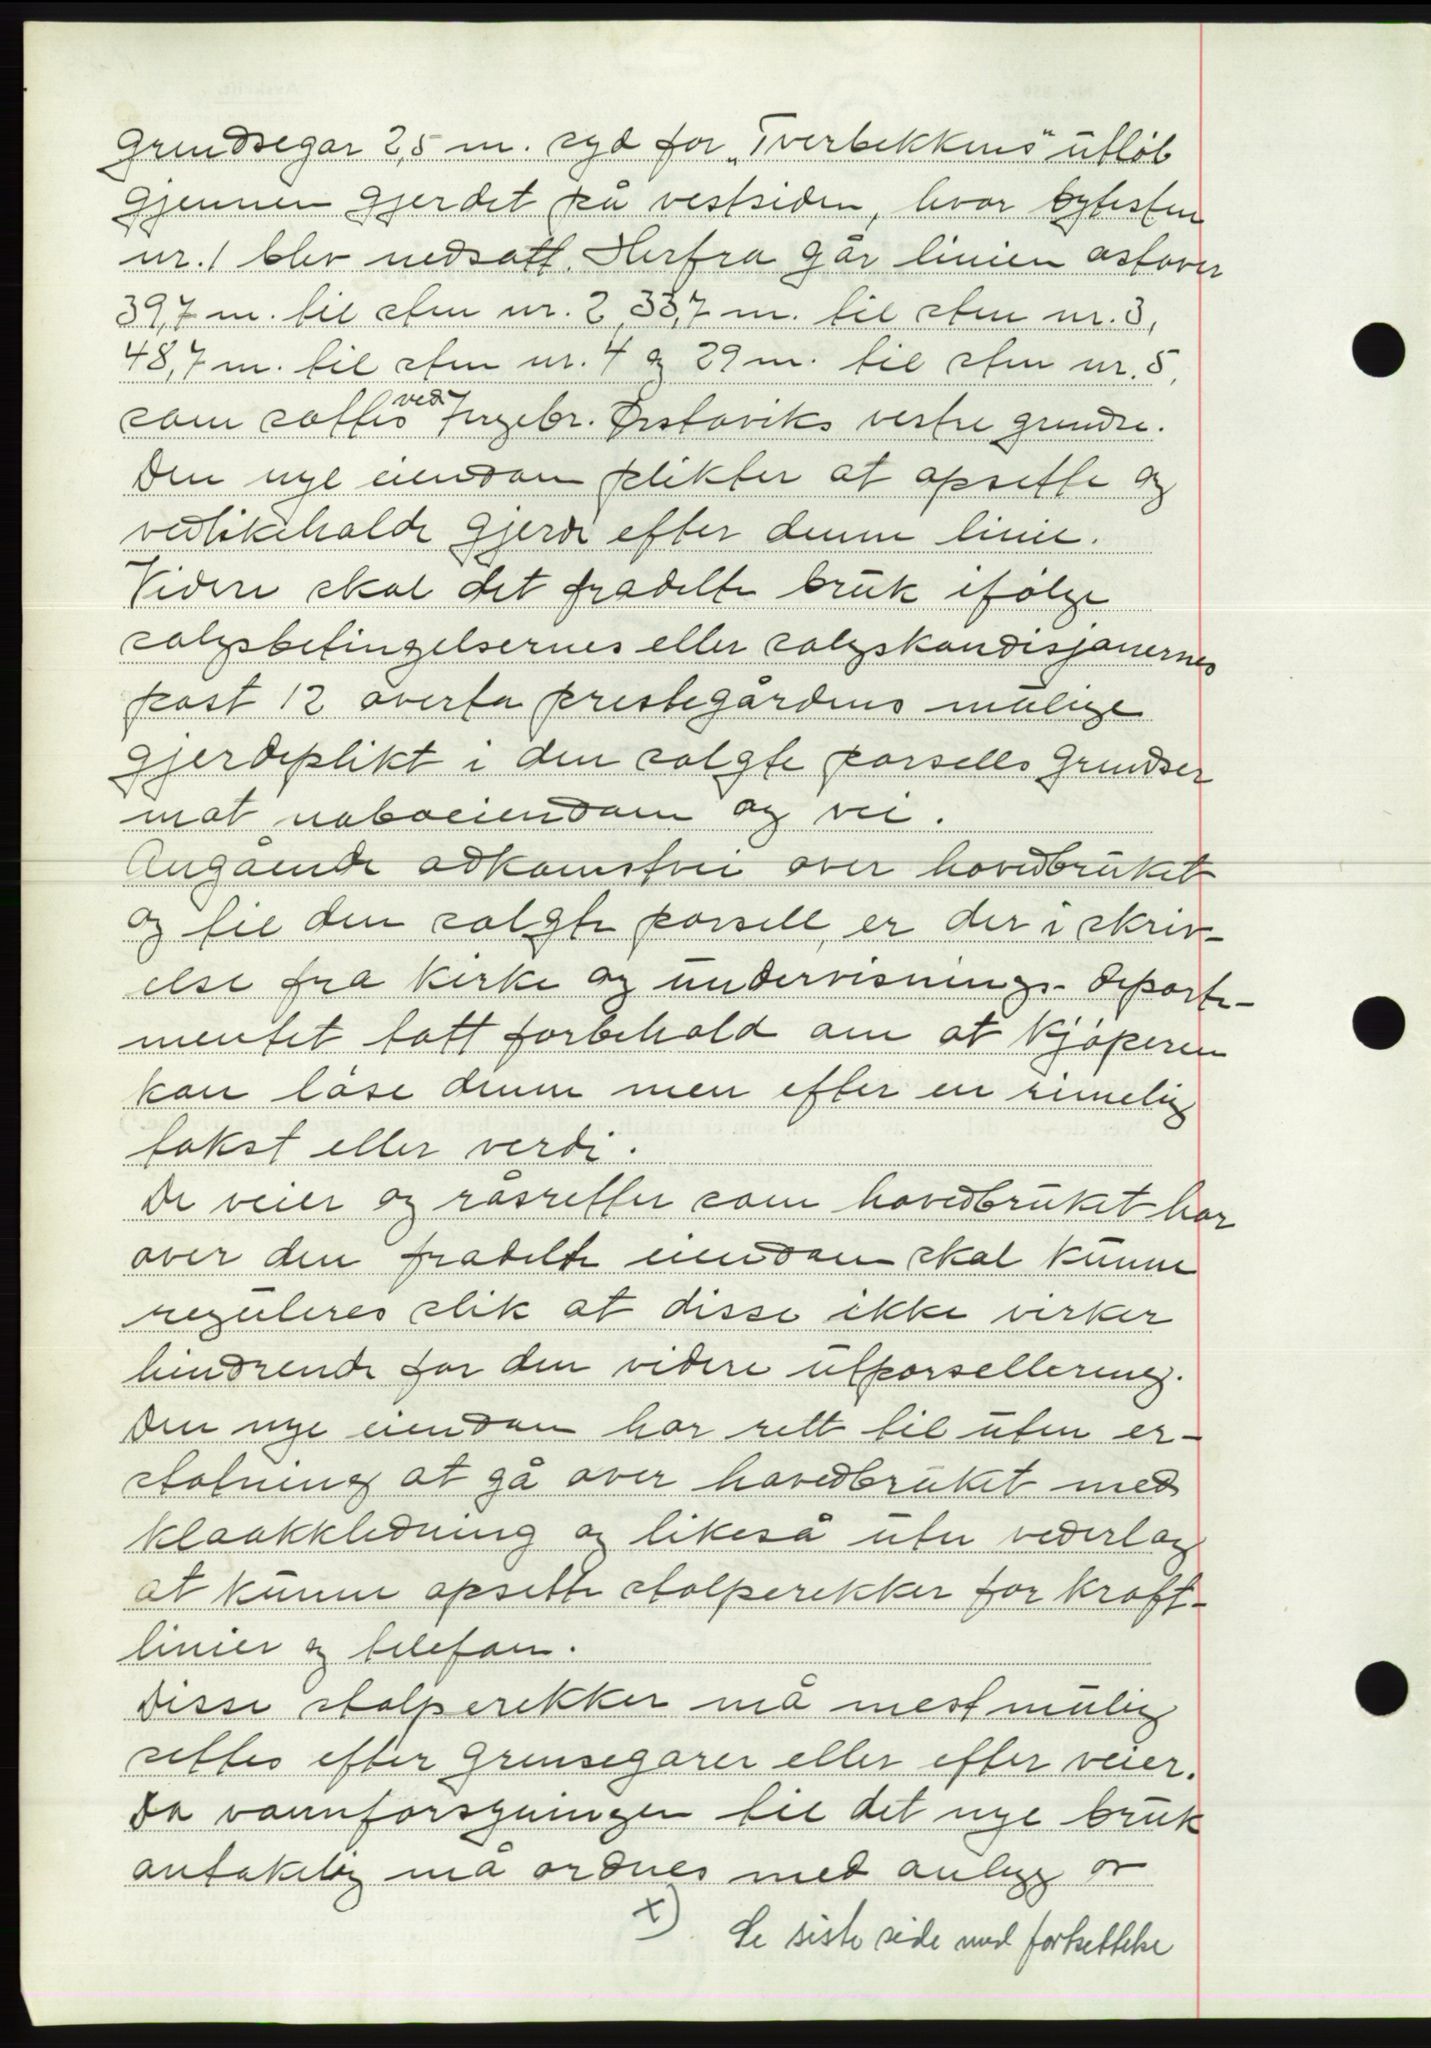 grendsegar 2,5 m. syd for „Tverbekkens" utløb
gjennem gjerdet på vestsiden, hvor bytesten
nr. 1 blev nedsatt. Herfra går linien østover
39,7 m. til sten nr. 2, 33,7 m. til sten nr. 3,
48,7 m. til sten nr. 4 og 29 m. til sten nr. 5,
som sattes ved Ingebr. Ørstaviks vestre grendse.
Den nye eiendom plikter at opsette og
vedlikeholde gjerde efter denne linie.
Videre skal det fradelte bruk ifølge
salgsbetingelsernes eller salgskondisjonernes
post 12 overta prestegårdens mulige
gjerdeplikt i den solgte parsells grendser
mot naboeiendom og vei.
Angående adkomstvei over hovedbruket
og til den solgte parsell, er der i skriv-
else fra Kirke og undervisnings-departe-
mentet tatt forbehold om at kjøperen
kan løse denne men efter en rimelig
takst eller verdi.
De veier og råsretter som hovedbruket har
over den fradelte eiendom skal kunne
reguleres slik at disse ikke virker
hindrende for den videre utparsellering.
Den nye eiendom har rett til uten er-
statning at gå over hovedbruket med
kloakkledning og likeså uten vederlag
at kunne opsette stolperekker for kraft-
linier og telefon.
Disse stolperekker må mest mulig
settes efter grensegarer eller efter veier.
Da vannforsyningen til det nye bruk
antakelig må ordnes med anlegg av
x) Se siste side med fortsettelse